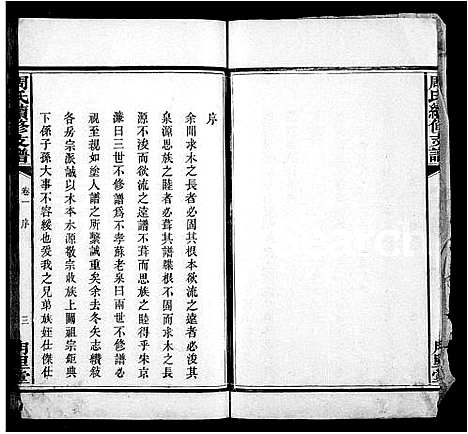 周氏續修支譜
序
余聞求木之長者必固其根本欲流之遠者必浚其
泉源思族之睦者必葺其譜牒根不固而求木之長
源不浚而欲流之遠譜不葺而思族之睦得乎朱京
濂曰三世不修譜爲不孝蘇老泉曰兩世不修譜必
視兄如塗人譜之所繫誠重矣余去冬矢志續敘
各房宗派誠以木本水源敬宗收族上關祖宗鉅典
下係子孫大事不容緩也爰我之兄弟族姪仕傑仕
周氏續修支譜
卷一
序
三